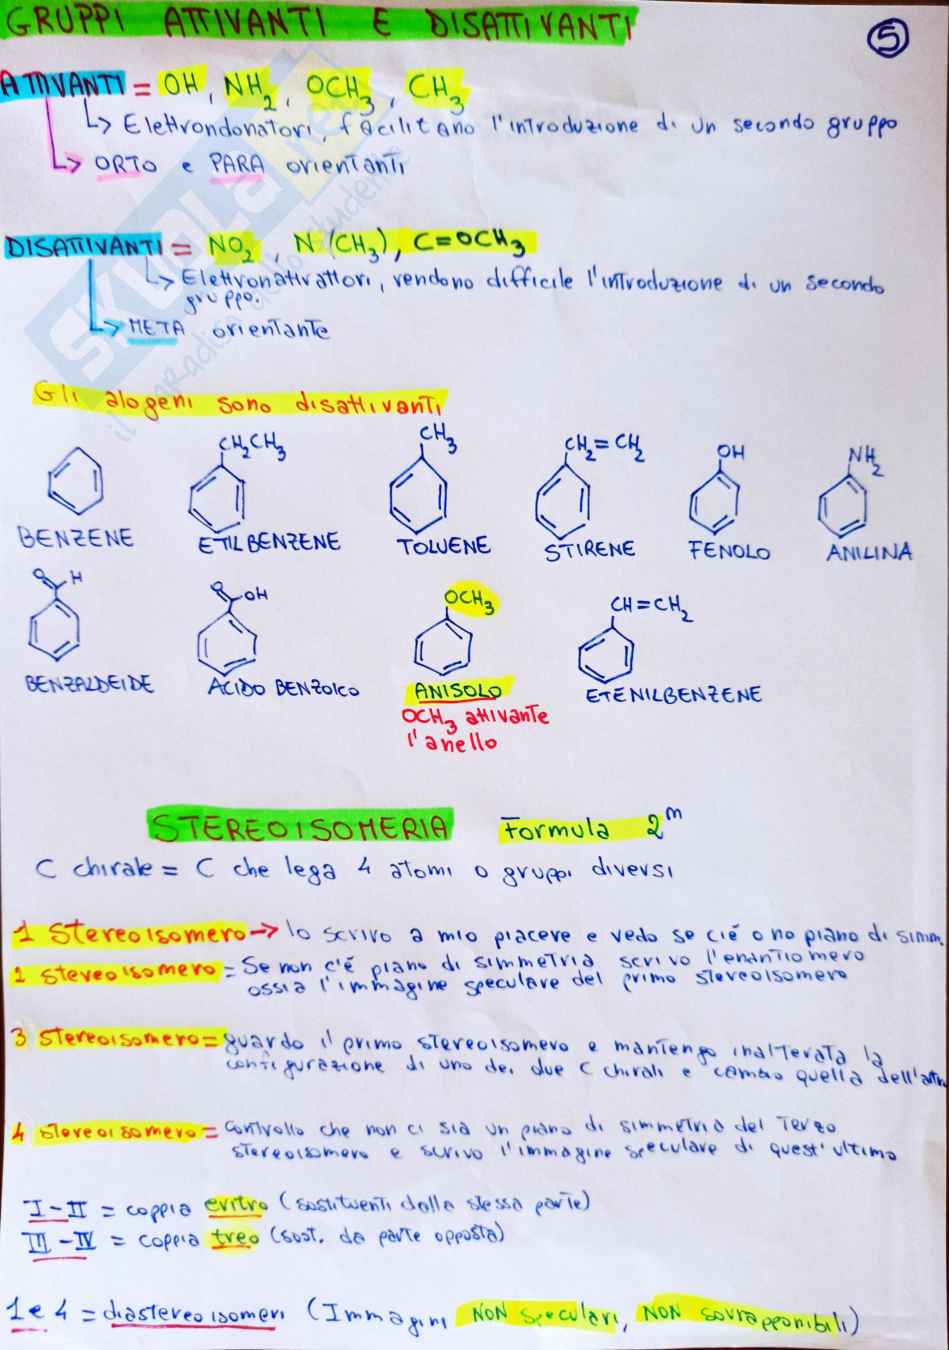 GRUPPI ATTIVANTI E DISATTIVANTI
5
ATTIVANTI = OH, NH2, OCH3, CH3
Elettrondonatori, facilitano l'introduzione di un secondo gruppo
ORTO e PARA orientanti
DISATTIVANTI = NO2, N(CH3), C=OCH3
Elettronattrattori, rendono difficile l'introduzione di un secondo
gruppo.
META orientante
Gli alogeni sono disattivanti
CH2CH3
CH3
CH2=CH2
OH
NH2
BENZENE
ETILBENZENE
TOLUENE
STIRENE
FENOLO
ANILINA
O H
O OH
OCH3
CH=CH2
BENZALDEIDE
ACIDO BENZOICO
ANISOLO
ETENILBENZENE
OCH3 attivante
l'anello
STEREOISOMERIA Formula 2^n
C chirale = C che lega 4 atomi o gruppi diversi
1 Stereoisomero → lo scrivo a mio piacere e vedo se c'è o no piano di simm.
2 stereoisomero = Se non c'è piano di simmetria scrivo l'enantiomero
ossia l'immagine speculare del primo stereoisomero
3 stereoisomero = guardo il primo stereoisomero e mantengo inalterata la
configurazione di uno dei due C chirali e cambio quella dell'altro
4 stereoisomero = controllo che non ci sia un piano di simmetria del terzo
stereoisomero e scrivo l'immagine speculare di quest'ultimo
I-II = coppia eritro (sostituenti dalla stessa parte)
III-IV = coppia treo (sost. da parte opposta)
1 e 4 = diastereoisomeri (Immagini NON speculari, NON sovrapponibili)
SKUOLA.net